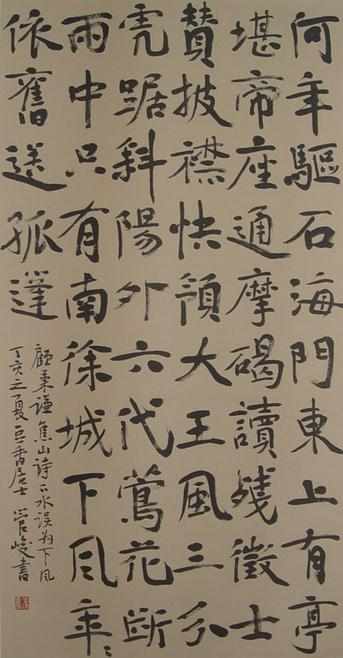 何年驅石海門東上有亭
堪帝座通摩碣讀殘徵士
贊披襟快領大王風三分
虎踞斜陽外六代鶯花斷
雨中只有南徐城下风年〻
依舊送孤蓬
焦山诗水误为下风
丁亥之夏居士管峻書